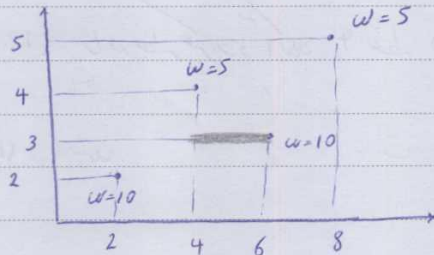 w=5
5
w=5
4
3
w=10
2
w=10
2 4 6 8